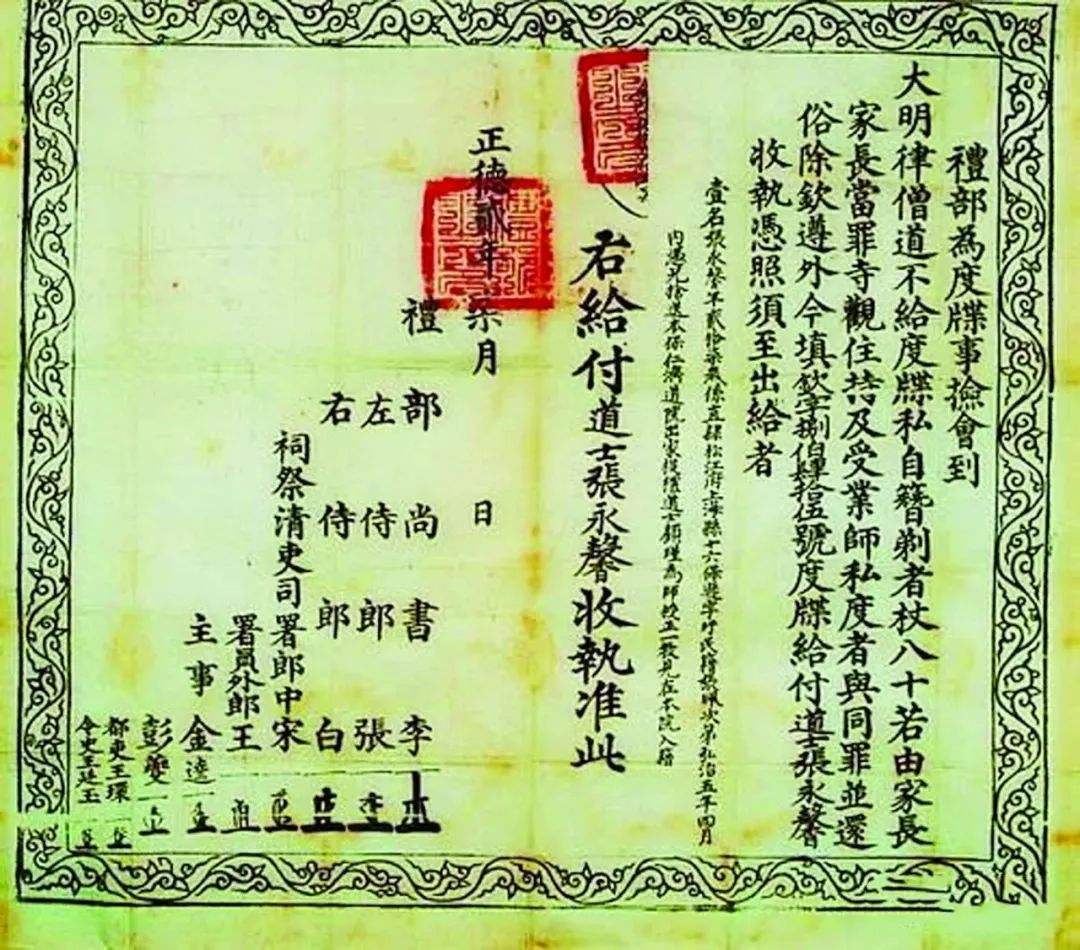 禮部為度牒事撿會到
大明律僧道不給度牒私自簪剃者杖八十若由家長
家長當罪寺觀住持及受業師私度者與同罪並還
俗除欽遵外今填欽字捌伯肆拾伍號度牒給付道士張永馨
收執憑照須至出給者
壹名張永馨年貳拾柒歲係直隸松江府上海縣十六保 民籍 次弟弘治五年四月
內 本保仁濟道院出家 道士顧瑾為師 正一教見在本院入籍
右給付道士張永馨收執准此
正德貳年柒月 日
禮部尚書李
左侍郎張
右侍郎白
祠祭清吏司署郎中宋
署員外郎王
主事金逵
彭夔
都吏王環
令史王廷玉